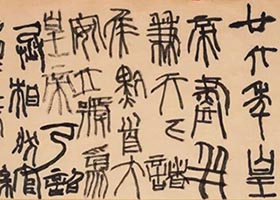 廿六年皇
帝盡并
兼天下諸
侯黔首大
安立號為
皇帝乃詔
丞相狀綰